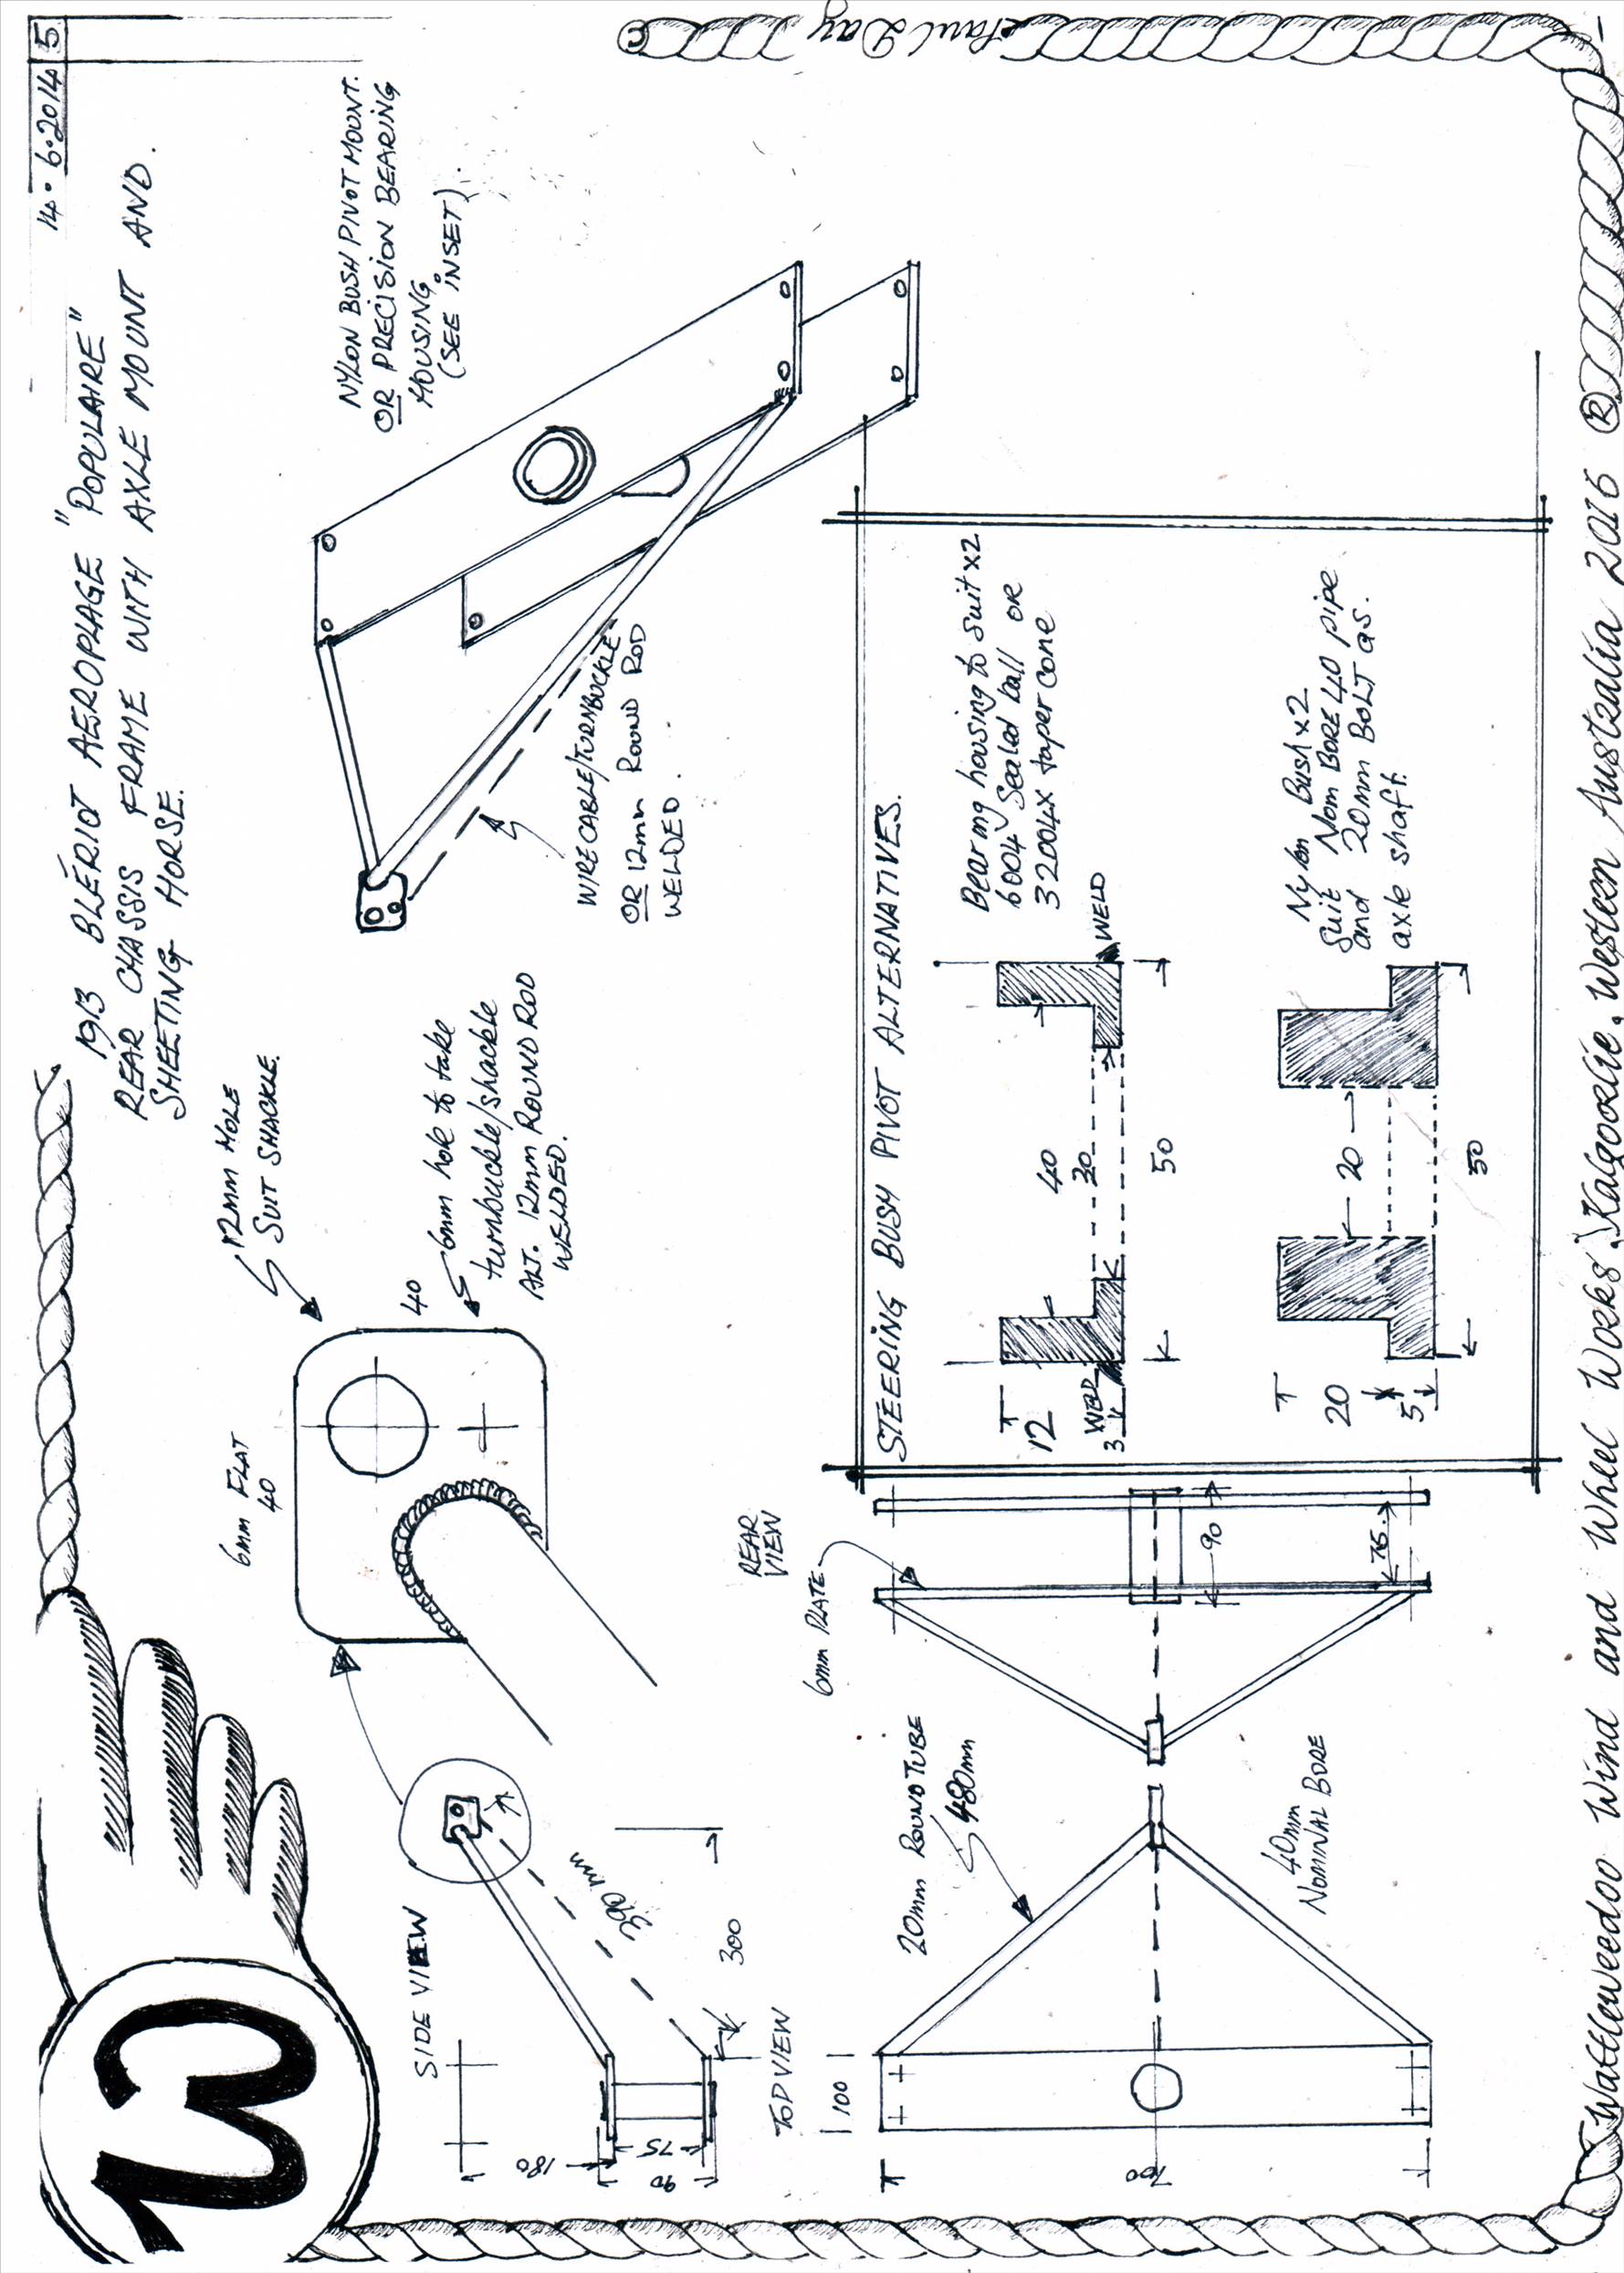 14·6·2014 5
1913 BLÉRIOT AEROPLAGE "POPULAIRE"
REAR CHASSIS FRAME WITH AXLE MOUNT AND.
SHEETING HORSE.
12mm HOLE
SUIT SHACKLE.
6mm FLAT
40
40
6mm hole to take
turnbuckle/shackle
ALT. 12mm ROUND ROD
WELDED.
NYLON BUSH PIVOT MOUNT.
OR PRECISION BEARING
HOUSING.
(SEE INSET).
WIRE CABLE/TURNBUCKLE
OR 12mm ROUND ROD
WELDED.
SIDE VIEW
390 mm
300
180
75
90
TOP VIEW
100
700
20mm ROUND TUBE
480mm
40mm
NOMINAL BORE
REAR
VIEW
6mm PLATE
90
75
STEERING BUSH PIVOT ALTERNATIVES.
12
WELD
3
40
30
50
WELD
Bearing housing to suit x2
6004 Sealed ball or
32004X taper cone
20
5
20
50
Nylon Bush x2
Suit Nom BORE 40 pipe
and 20mm BOLT as.
axle shaft.
Wattleweedoo Wind and Wheel Works. Kalgoorlie. Western Australia 2016 ®
Paul Day ©